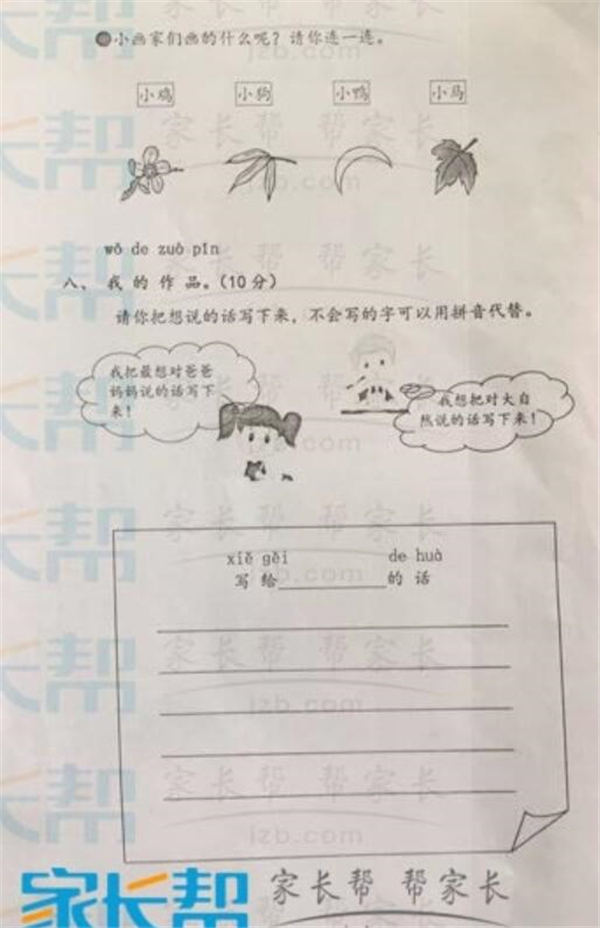 小画家们画的什么呢？请你连一连。
小鸡 小狗 小鸭 小马
wǒ de zuò pǐn
八、我的作品。(10分)
请你把想说的话写下来，不会写的字可以用拼音代替。
我把最想对爸爸
妈妈说的话写下
来！
我想把对大自
然说的话写下来！
xiě gěi de huà
写给__________的话
家长帮 家长帮 帮家长